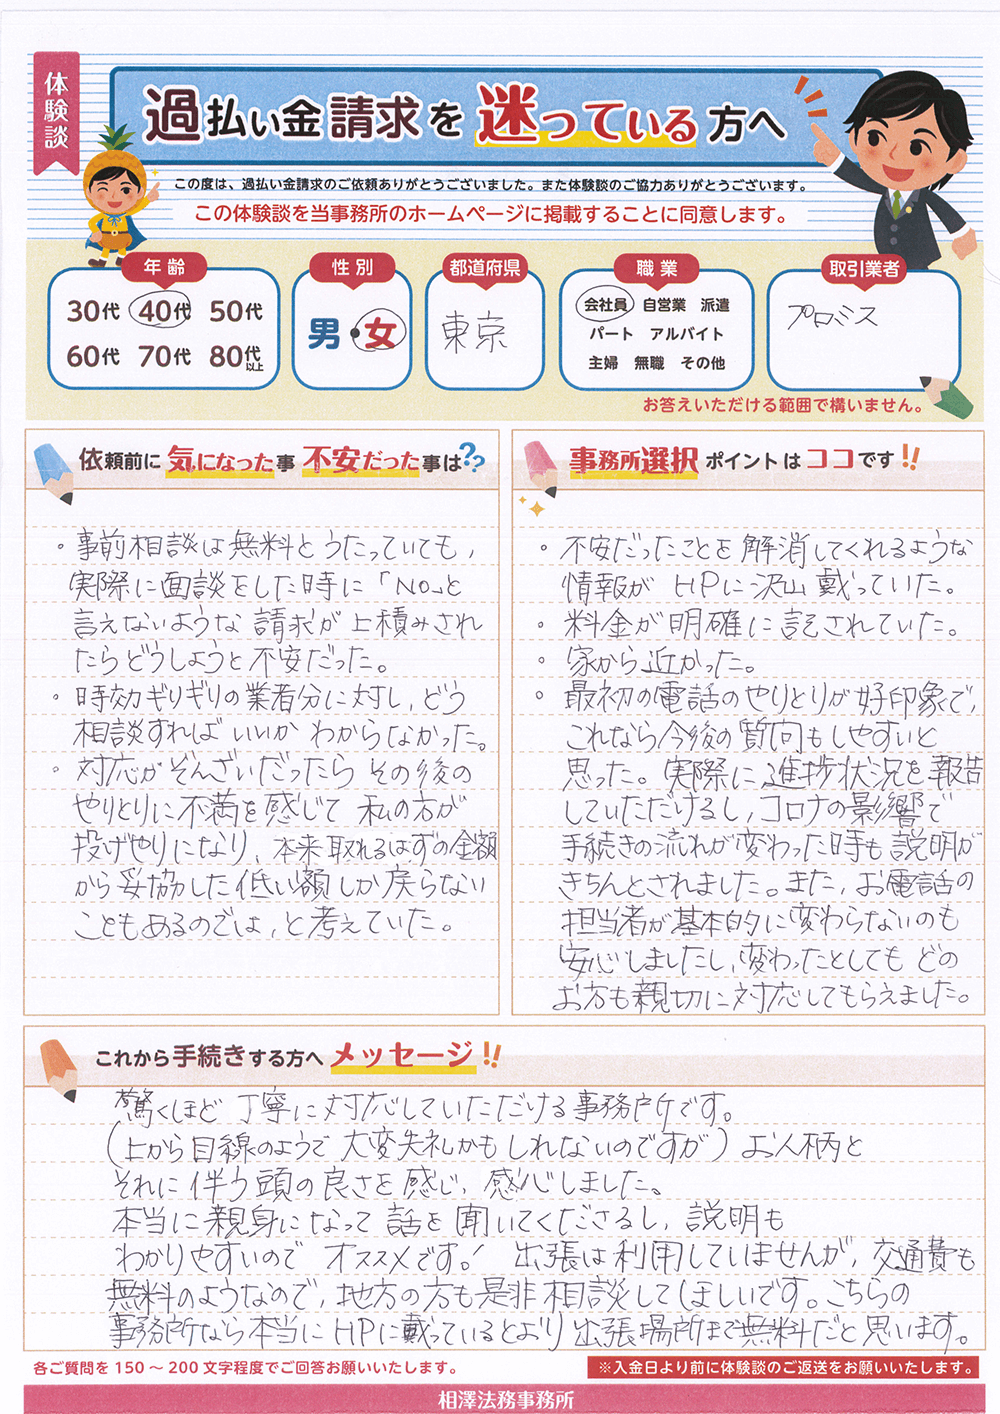 体験談
過払い金請求を迷っている方へ
この度は、過払い金請求のご依頼ありがとうございました。また体験談のご協力ありがとうございます。
この体験談を当事務所のホームページに掲載することに同意します。
年齢 性別 都道府県 職業 取引業者
30代 40代 50代
60代 70代 80代以上
男・女
東京
会社員 自営業 派遣
パート アルバイト
主婦 無職 その他
プロミス
お答えいただける範囲で構いません。
依頼前に気になった事 不安だった事は??
・事前相談は無料とうたっていても、
実際に面談をした時に「No」と
言えないような請求が上積みされ
たらどうしようと不安だった。
・時効ギリギリの業者分に対し、どう
相談すればいいかわからなかった。
・対応がぞんざいだったらその後の
やりとりに不満を感じて私の方が
投げやりになり、本来取れるはずの金額
から妥協した低い額しか戻らない
こともあるのでは、と考えていた。
事務所選択ポイントはココです!!
・不安だったことを解消してくれるような
情報がHPに沢山載っていた。
・料金が明確に記されていた。
・家から近かった。
・最初の電話のやりとりが好印象で、
これなら今後の質問もしやすいと
思った。実際に進捗状況を報告
していただけるし、コロナの影響で
手続きの流れが変わった時も説明が
きちんとされました。また、お電話の
担当者が基本的に変わらないのも
安心しましたし、変わったとしてもどの
お方も親切に対応してもらえました。
これから手続きする方へメッセージ!!
驚くほど丁寧に対応していただける事務所です。
(上から目線のようで大変失礼かもしれないのですが)お人柄と
それに伴う頭の良さを感じ、感心しました。
本当に親身になって話を聞いてくださるし、説明も
わかりやすいのでオススメです! 出張は利用していませんが、交通費も
無料のようなので、地方の方も是非相談してほしいです。こちらの
事務所なら本当にHPに載っているとおり出張場所まで無料だと思います。
各ご質問を150〜200文字程度でご回答お願いいたします。
※入金日より前に体験談のご返送をお願いいたします。
相澤法務事務所